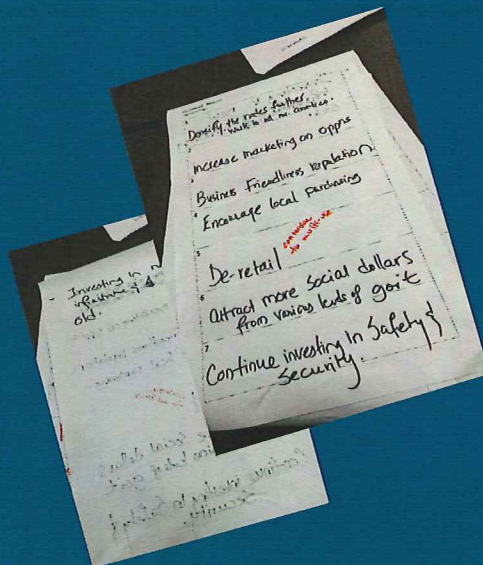 Densify the nodes further.
Work to add more amenities.
2
Increase marketing on oppns
3
Business Friendliness reputation
4
Encourage local purchasing
5
De-retail
conversion
to multi-use
6
Attract more social dollars
from various levels of gov't
7
Continue investing in Safety &
Security.
Investing in
infrastructure &
old.